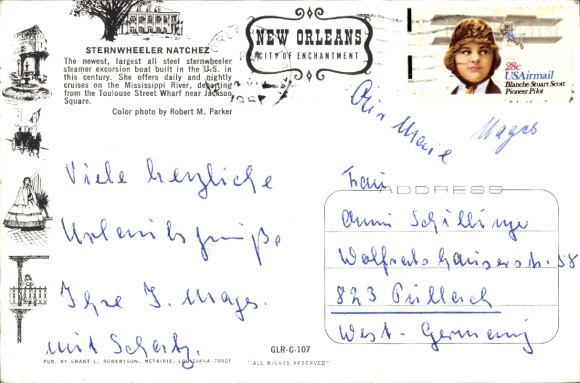 STERNWHEELER NATCHEZ
The newest, largest all steel sternwheeler
steamer excursion boat built in the U.S. in
this century. She offers daily and nightly
cruises on the Mississippi River, departing
from the Toulouse Street Wharf near Jackson
Square.
Color photo by Robert M. Parker
NEW ORLEANS
CITY OF ENCHANTMENT
28c
USAirmail
Blanche Stuart Scott
Pioneer Pilot
Air Marie
Mages
Viele herzliche
Urlaubsgrüße
Ihre J. Mages.
mit Schatz.
ADDRESS
Frau
Anni Schillinger
Wolfratshauserstr. 58
823 Pullach
West-Germany
GLR-C-107
PUB. BY GRANT L. ROBERTSON, METAIRIE, LOUISIANA 70001
"ALL RIGHTS RESERVED"